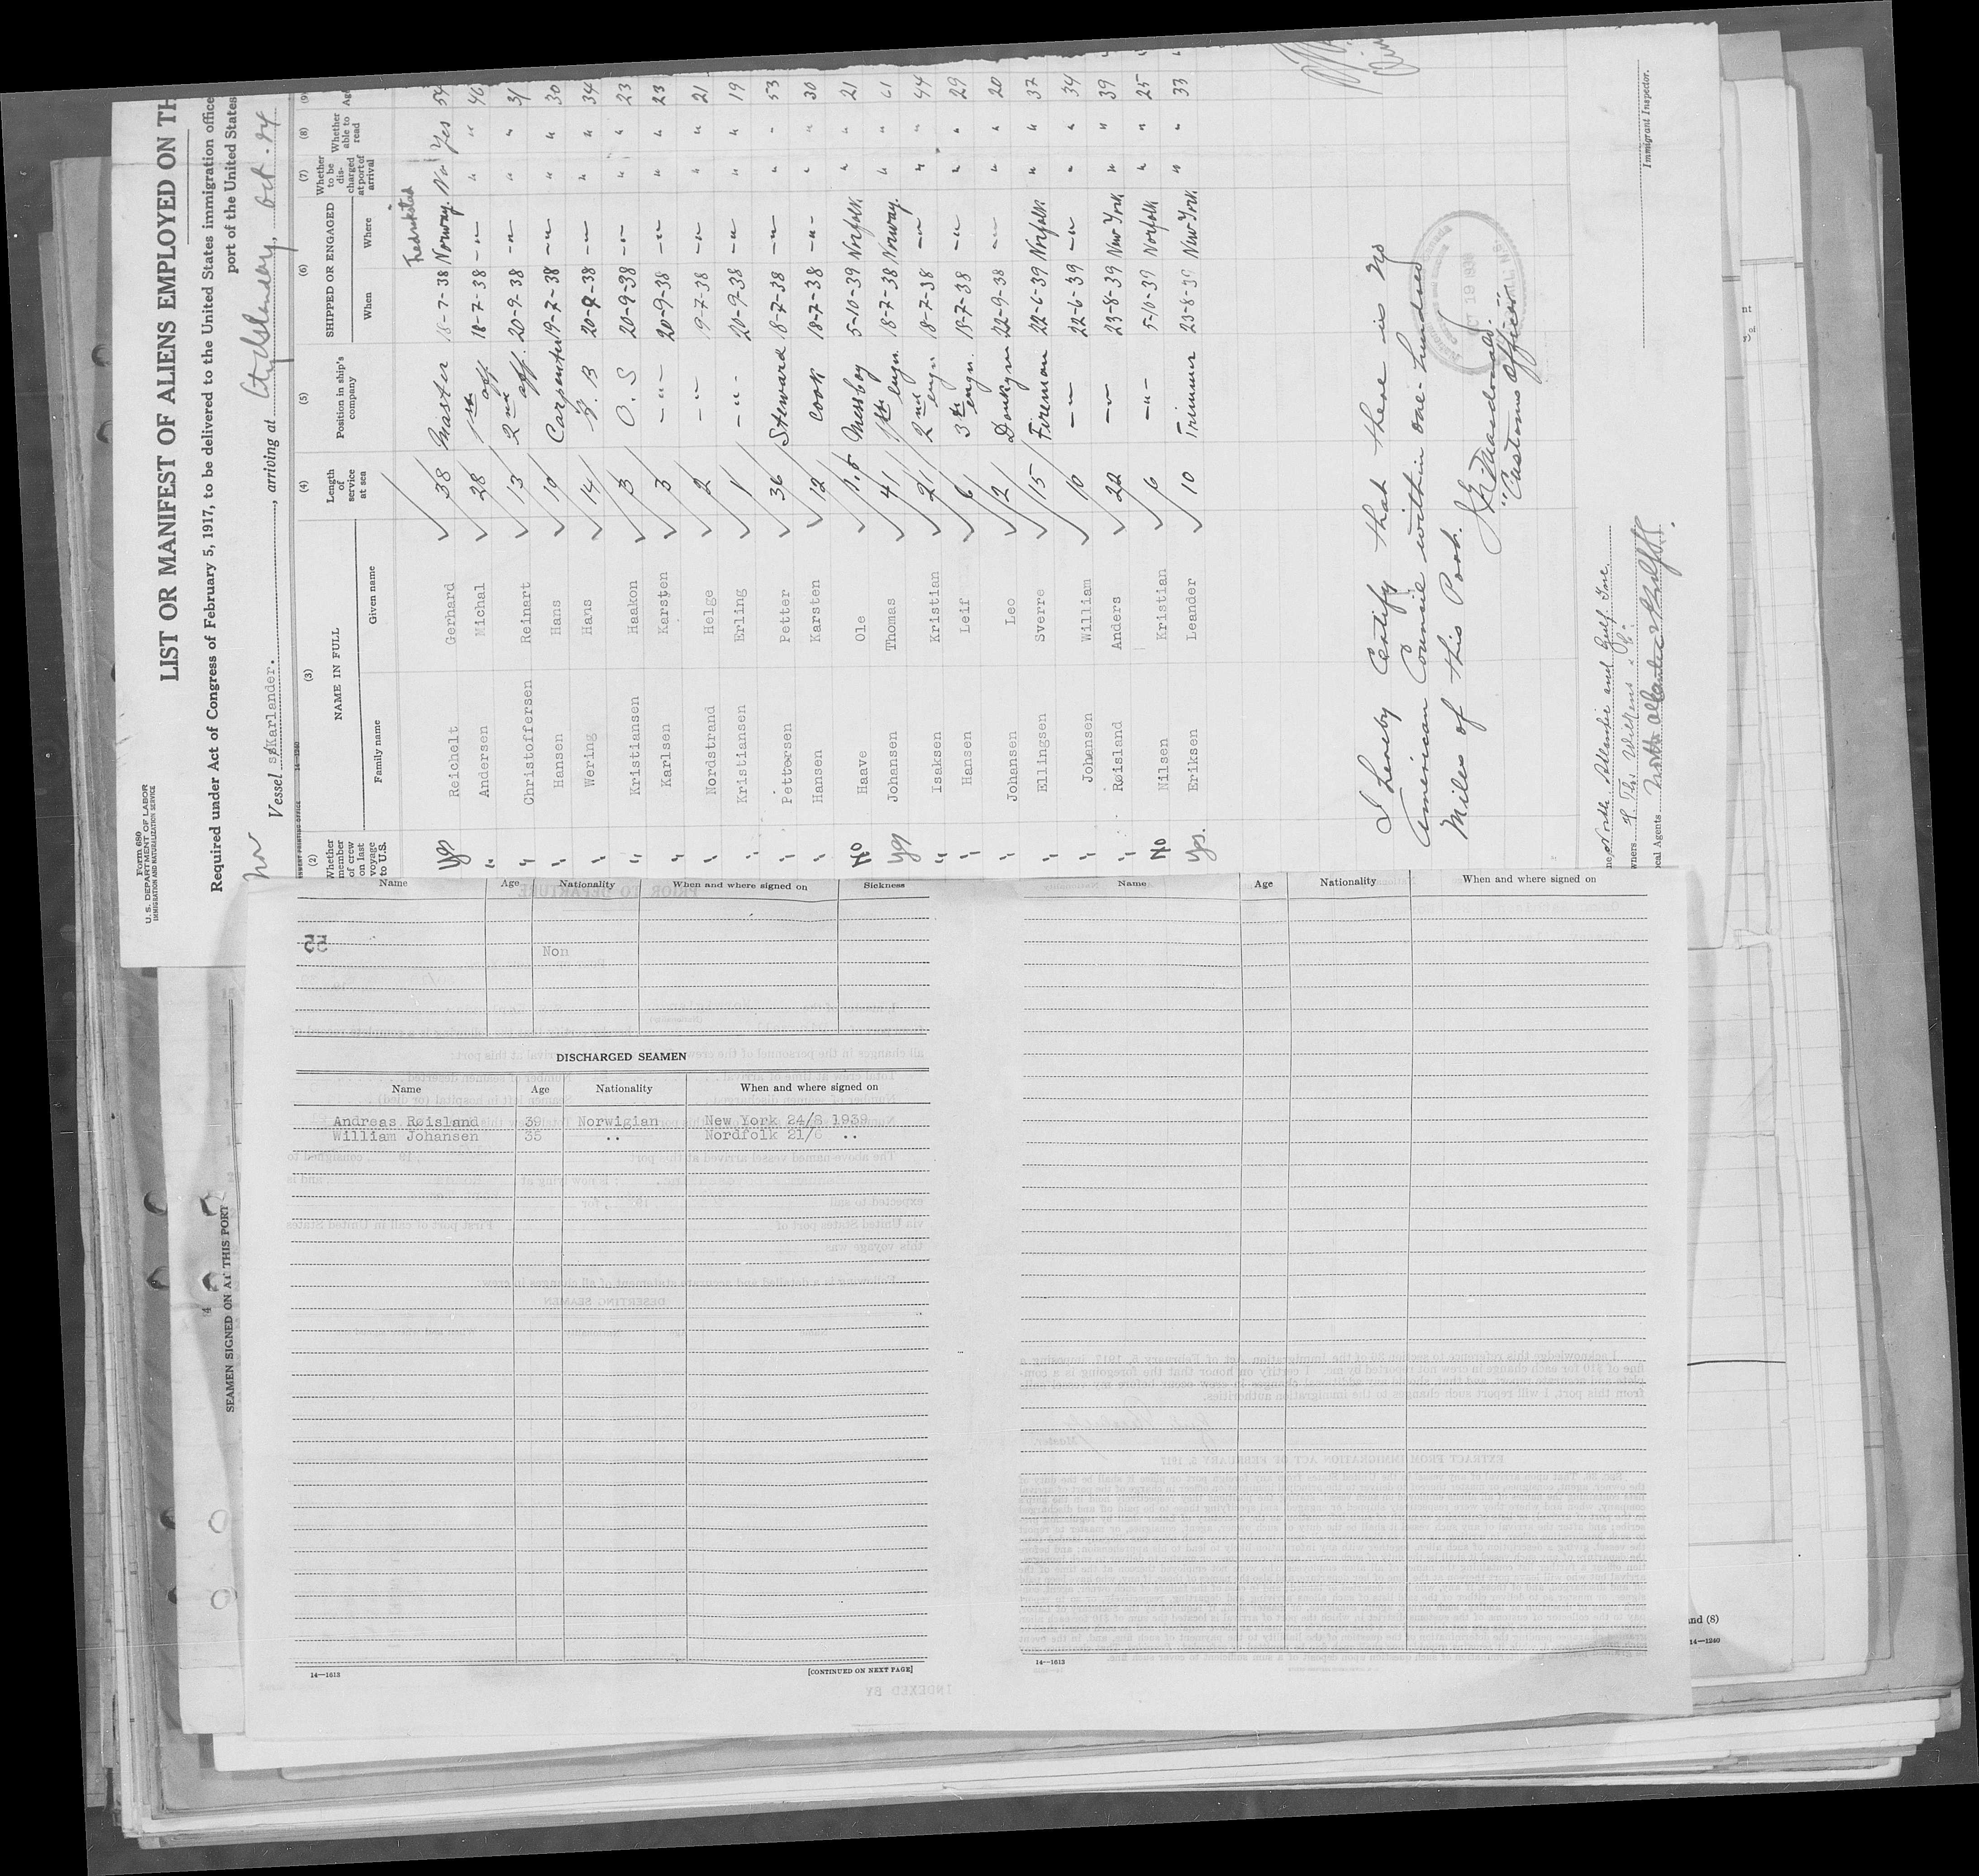 Form 680
U. S. DEPARTMENT OF LABOR
IMMIGRATION AND NATURALIZATION SERVICE
LIST OR MANIFEST OF ALIENS EMPLOYED ON TH
Required under Act of Congress of February 5, 1917, to be delivered to the United States immigration office
port of the United States
Nor Vessel s/s Karlander. , arriving at Oct. 24
(2) (3) (4) (5) (6) (7) (8) (9)
Whether member of crew on last voyage to U.S. NAME IN FULL Length of service at sea Position in ship's company SHIPPED OR ENGAGED Whether to be discharged at port of arrival Whether able to read Ag
Family name Given name When Where
Fredrikstad
Yes Reichelt Gerhard 38 Master 18-7-38 Norway. No Yes 54
" Andersen Michal 28 1st off. 18-7-38 -"- " " 46
" Christoffersen Reinart 13 2nd off. 20-9-38 -"- " " 31
" Hansen Hans 10 Carpenter 19-7-38 -"- " " 30
" Wering Hans 14 B. B 20-9-38 -"- " " 34
" Kristiansen Haakon 3 O. S 20-9-38 -"- " " 23
" Karlsen Karsten 3 -"- 20-9-38 -"- " " 23
" Nordstrand Helge 2 -"- 9-7-38 -"- " " 21
" Kristiansen Erling 1 -"- 20-9-38 -"- " " 19
" Pettersen Petter 36 Steward 8-7-38 -"- " " 53
" Hansen Karsten 12 Cook 18-7-38 -"- " " 30
No Haave Ole Messboy 5-10-39 Norfolk " " 21
Yes Johansen Thomas 41 1st engn. 18-7-38 Norway. " " 61
" Isaksen Kristian 21 2nd engn. 18-7-38 -"- " " 44
" Hansen Leif 6 3th engn. 18-7-38 -"- " " 29
" Johansen Leo 2 Donkeyman 22-9-38 -"- " " 20
" Ellingsen Sverre 15 Fireman 22-6-39 Norfolk " " 37
" Johansen William 10 -"- 22-6-39 -"- " " 34
" Røisland Anders 22 -"- 23-8-39 New York " " 39
No Nilsen Kristian 6 -"- 5-10-39 Norfolk " " 25
Yes. Eriksen Leander 10 Trimmer 23-8-39 New York " " 33
I hereby Certify that there is no
American Council within one-hundred
Miles of this Port.
"Customs Officer"
OCT 19 1939
North Atlantic and Gulf Line.
wners
ocal Agents
Immigrant Inspector.
Name Age Nationality When and where signed on Sickness
33
Non
DISCHARGED SEAMEN
Name Age Nationality When and where signed on
Andreas Røisland 39 Norwigian New York 24/8 1939
William Johansen 35 .. Nordfolk 21/6 ..
14—1613 [CONTINUED ON NEXT PAGE]
Name Age Nationality When and where signed on
14—1613
SEAMEN SIGNED ON AT THIS PORT
and (8)
14—1240